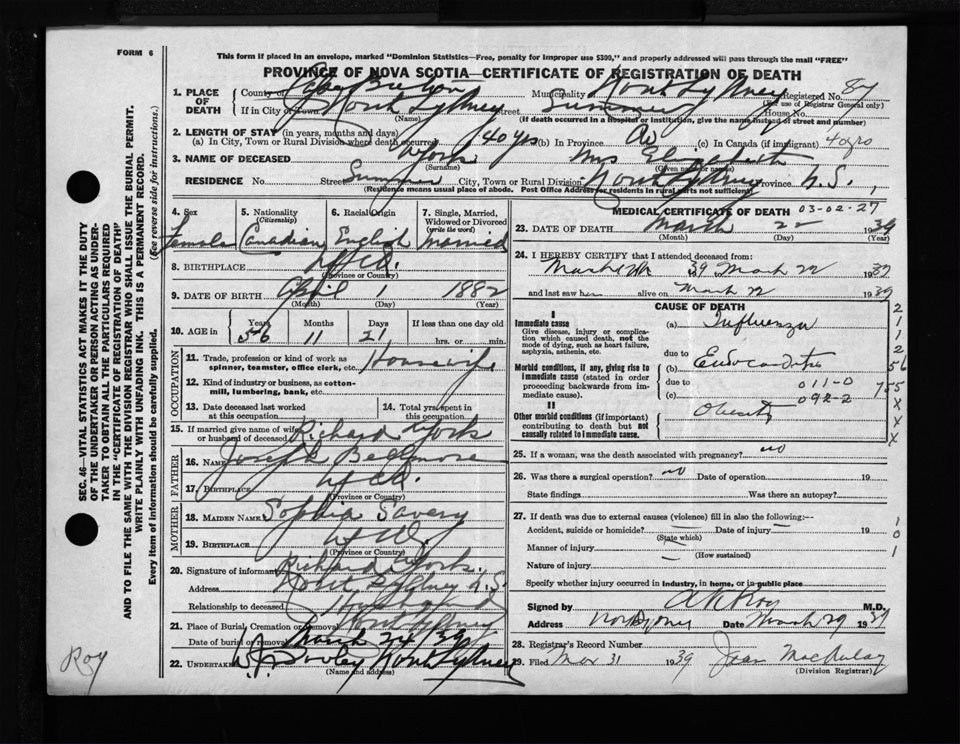 FORM 6
This form if placed in an envelope, marked "Dominion Statistics—Free, penalty for improper use $300," and properly addressed will pass through the mail "FREE"
PROVINCE OF NOVA SCOTIA—CERTIFICATE OF REGISTRATION OF DEATH
1. PLACE OF DEATH
County of Cape Breton Municipality North Sydney Registered No. 87
(For use of Registrar General only)
If in City or Town North Sydney Street Summer House No.
(Name) (If death occurred in a hospital or institution, give the name instead of street and number)
2. LENGTH OF STAY (in years, months and days)
(a) In City, Town or Rural Division where death occurred 40 yrs (b) In Province (c) In Canada (if immigrant) 40 yrs
3. NAME OF DECEASED York Mrs Elizabeth
(Surname) (Given name or names)
RESIDENCE No. Street Summer City, Town or Rural Division North Sydney Province N.S.
(Residence means usual place of abode. Post Office Address for residents in rural parts not sufficient)
4. Sex Female
5. Nationality (Citizenship) Canadian
6. Racial Origin English
7. Single, Married, Widowed or Divorced (write the word) Married
8. BIRTHPLACE Nfld.
(Province or Country)
9. DATE OF BIRTH April 1 1882
(Month) (Day) (Year)
10. AGE in Years 56 Months 11 Days 21 If less than one day old hrs. or min.
OCCUPATION
11. Trade, profession or kind of work as spinner, teamster, office clerk, etc. Housewife
12. Kind of industry or business, as cotton-mill, lumbering, bank, etc.
13. Date deceased last worked at this occupation
14. Total yrs. spent in this occupation
15. If married give name of wife or husband of deceased Richard York
FATHER
16. NAME Joseph
17. BIRTHPLACE Nfld.
(Province or Country)
MOTHER
18. MAIDEN NAME Sophia Savery
19. BIRTHPLACE Nfld.
(Province or Country)
20. Signature of informant Richard York
Address North Sydney N.S.
Relationship to deceased Husband
21. Place of Burial, Cremation or Removal North Sydney
Date of burial or removal March 24 1939
22. UNDERTAKER North Sydney
(Name and address)
MEDICAL CERTIFICATE OF DEATH 03-02-27
23. DATE OF DEATH March 22 1939
(Month) (Day) (Year)
24. I HEREBY CERTIFY that I attended deceased from:
March 39 March 22 1939
and last saw her alive on March 22 1939
CAUSE OF DEATH
I
Immediate cause
Give disease, injury or complication which caused death, not the mode of dying, such as heart failure, asphyxia, asthenia, etc.
(a) Influenza
due to
Morbid conditions, if any, giving rise to immediate cause (stated in order proceeding backwards from immediate cause).
(b) Endocarditis
due to 011-0
(c) 092-2
II
Other morbid conditions (if important) contributing to death but not causally related to immediate cause.
Obesity
2
1
1
2
56
755
X
X
X
X
25. If a woman, was the death associated with pregnancy? no
26. Was there a surgical operation? no Date of operation 19
State findings Was there an autopsy?
27. If death was due to external causes (violence) fill in also the following:—
Accident, suicide or homicide? — Date of injury — 19
(State which)
Manner of injury —
(How sustained)
Nature of injury —
Specify whether injury occurred in industry, in home, or in public place
1
0
1
Signed by A K Roy M.D.
Address North Sydney Date March 29 1939
28. Registrar's Record Number
29. Filed Mar 31 1939 Jean MacAulay
(Division Registrar)
SEC. 46—VITAL STATISTICS ACT MAKES IT THE DUTY
OF THE UNDERTAKER OR PERSON ACTING AS UNDER-
TAKER TO OBTAIN ALL THE PARTICULARS REQUIRED
IN THE "CERTIFICATE OF REGISTRATION OF DEATH"
AND TO FILE THE SAME WITH THE DIVISION REGISTRAR WHO SHALL ISSUE THE BURIAL PERMIT.
WRITE PLAINLY WITH UNFADING INK. THIS IS A PERMANENT RECORD.
Every item of information should be carefully supplied. (See reverse side for instructions.)
Roy